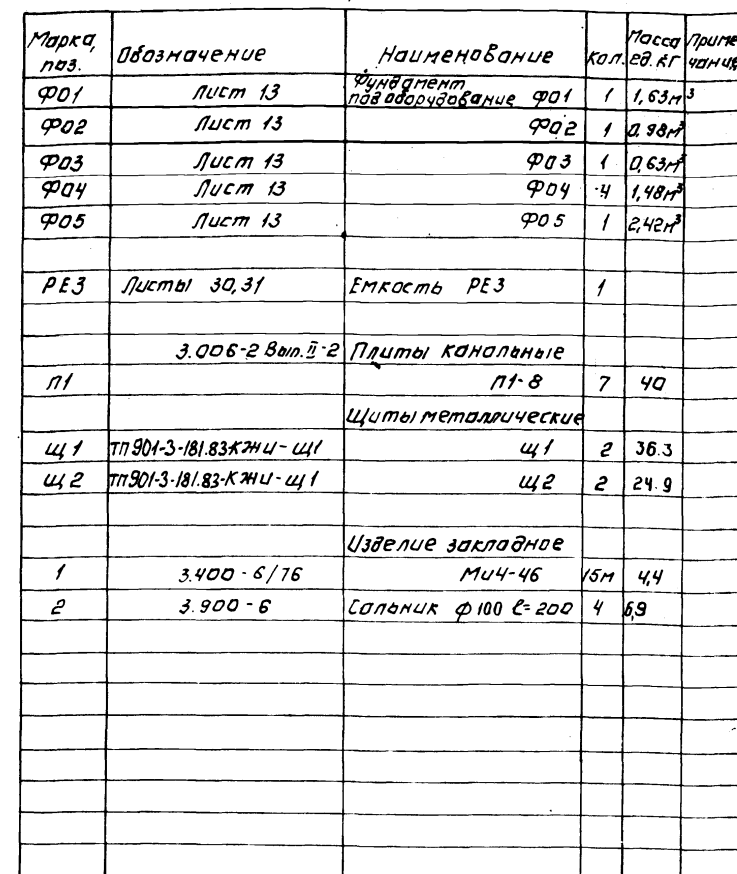 Марка, поз. Обозначение Наименование Кол. Масса ед. кг Примечания
ФО1 Лист 13 Фундамент под оборудование ФО1 1 1,63м³
ФО2 Лист 13 ФО2 1 0,98м³
ФО3 Лист 13 ФО3 1 0,63м³
ФО4 Лист 13 ФО4 4 1,48м³
ФО5 Лист 13 ФО5 1 2,42м³
РЕ3 Листы 30,31 Емкость РЕ3 1
3.006-2 Вып. II-2 Плиты канальные
П1 П1-8 7 40
Щиты металлические
Щ1 ТП901-3-181.83-КЖИ-Щ1 Щ1 2 36.3
Щ2 ТП901-3-181.83-КЖИ-Щ1 Щ2 2 24.9
Изделие закладное
1 3.400-6/76 МИ4-46 15м 4,4
2 3.900-6 Сальник ф100 ℓ=200 4 6,9